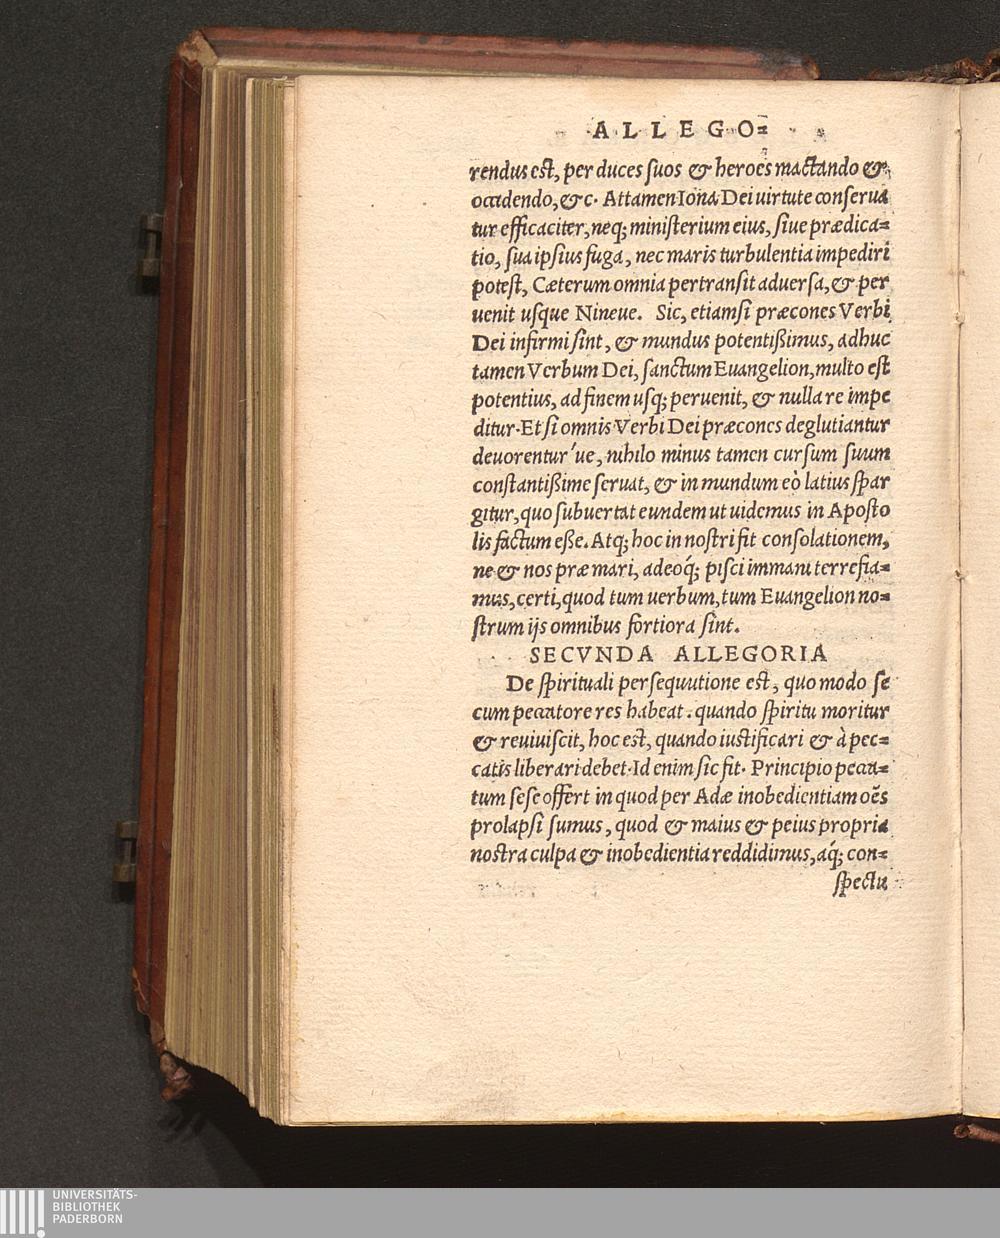 ALLEGO=
rendus est, per duces suos & heroës mactando &
occidendo, &c. Attamen Iona Dei uirtute conserua
tur efficaciter, neq; ministerium eius, siue prædica=
tio, sua ipsius fuga, nec maris turbulentia impediri
potest, Cæterum omnia pertransit aduersa, & per
uenit usque Nineue. Sic, etiamsi præcones Verbi
Dei infirmi sint, & mundus potentißimus, adhuc
tamen Verbum Dei, sanctum Euangelion, multo est
potentius, ad finem usq; peruenit, & nulla re impe
ditur. Et si omnis Verbi Dei præcones deglutiantur
deuorentur'ue, nihilo minus tamen cursum suum
constantißime seruat, & in mundum eò latius spar
gitur, quo subuertat eundem ut uidemus in Aposto
lis factum eße. Atq; hoc in nostri fit consolationem,
ne & nos præ mari, adeoq́; pisci immani terrefia=
mus, certi, quod tum uerbum, tum Euangelion no=
strum ijs omnibus fortiora sint.
SECVNDA ALLEGORIA
De spirituali persequutione est, quo modo se
cum peccatore res habeat. quando spiritu moritur
& reuiuiscit, hoc est, quando iustificari & à pec=
catis liberari debet. Id enim sic fit. Principio pecca=
tum sese offert in quod per Adæ inobedientiam oẽs
prolapsi sumus, quod & maius & peius propria
nostra culpa & inobedientia reddidimus, aq́; con=
spectu
UNIVERSITÄTS-
BIBLIOTHEK
PADERBORN